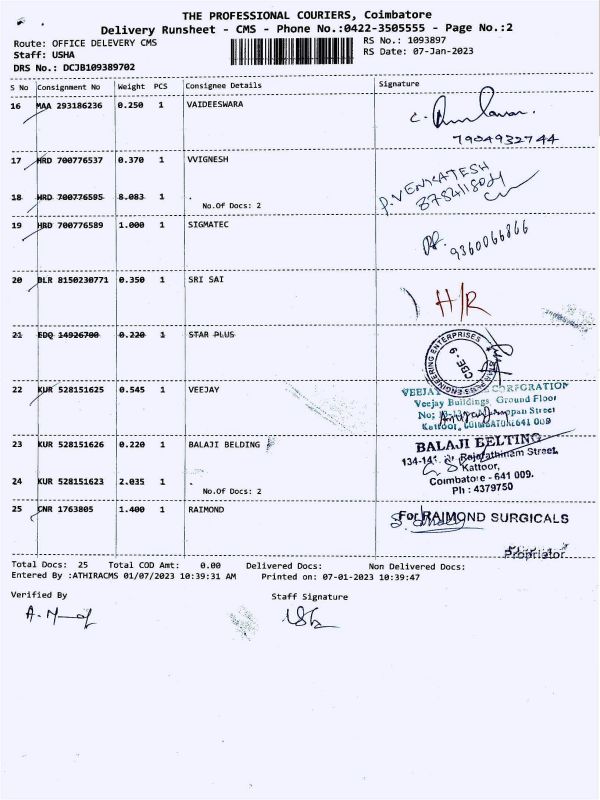 THE PROFESSIONAL COURIERS, Coimbatore
Delivery Runsheet - CMS - Phone No.:0422-3505555 - Page No.:2
Route: OFFICE DELEVERY CMS
RS No.: 1093897
Staff: USHA
RS Date: 07-Jan-2023
DRS No.: DCJB109389702
S No Consignment No Weight PCS Consignee Details Signature
16 MAA 293186236 0.250 1 VAIDEESWARA
7904932744
17 HRD 700776537 0.370 1 VVIGNESH
P. VENKATESH
18 HRD 700776595 8.083 1 .
No.Of Docs: 2
19 HRD 700776589 1.000 1 SIGMATEC
9360066866
20 BLR 8150230771 0.350 1 SRI SAI
H/R
21 EDQ 14926700 0.220 1 STAR PLUS
ENGINEERING ENTERPRISES
CBE - 9
22 KUR 528151625 0.545 1 VEEJAY
VEEJAY CORPORATION
Veejay Buildings Ground Floor
Street
Kattoor, COIMBATORE 641 009
23 KUR 528151626 0.220 1 BALAJI BELDING
BALAJI BELTING
Rajarathinam Street,
Kattoor,
24 KUR 528151623 2.035 1 .
Coimbatore - 641 009.
No.Of Docs: 2
Ph : 4379750
25 CNR 1763805 1.400 1 RAIMOND
For RAIMOND SURGICALS
Proprietor
Total Docs: 25 Total COD Amt: 0.00 Delivered Docs: Non Delivered Docs:
Entered By :ATHIRACMS 01/07/2023 10:39:31 AM Printed on: 07-01-2023 10:39:47
Verified By Staff Signature